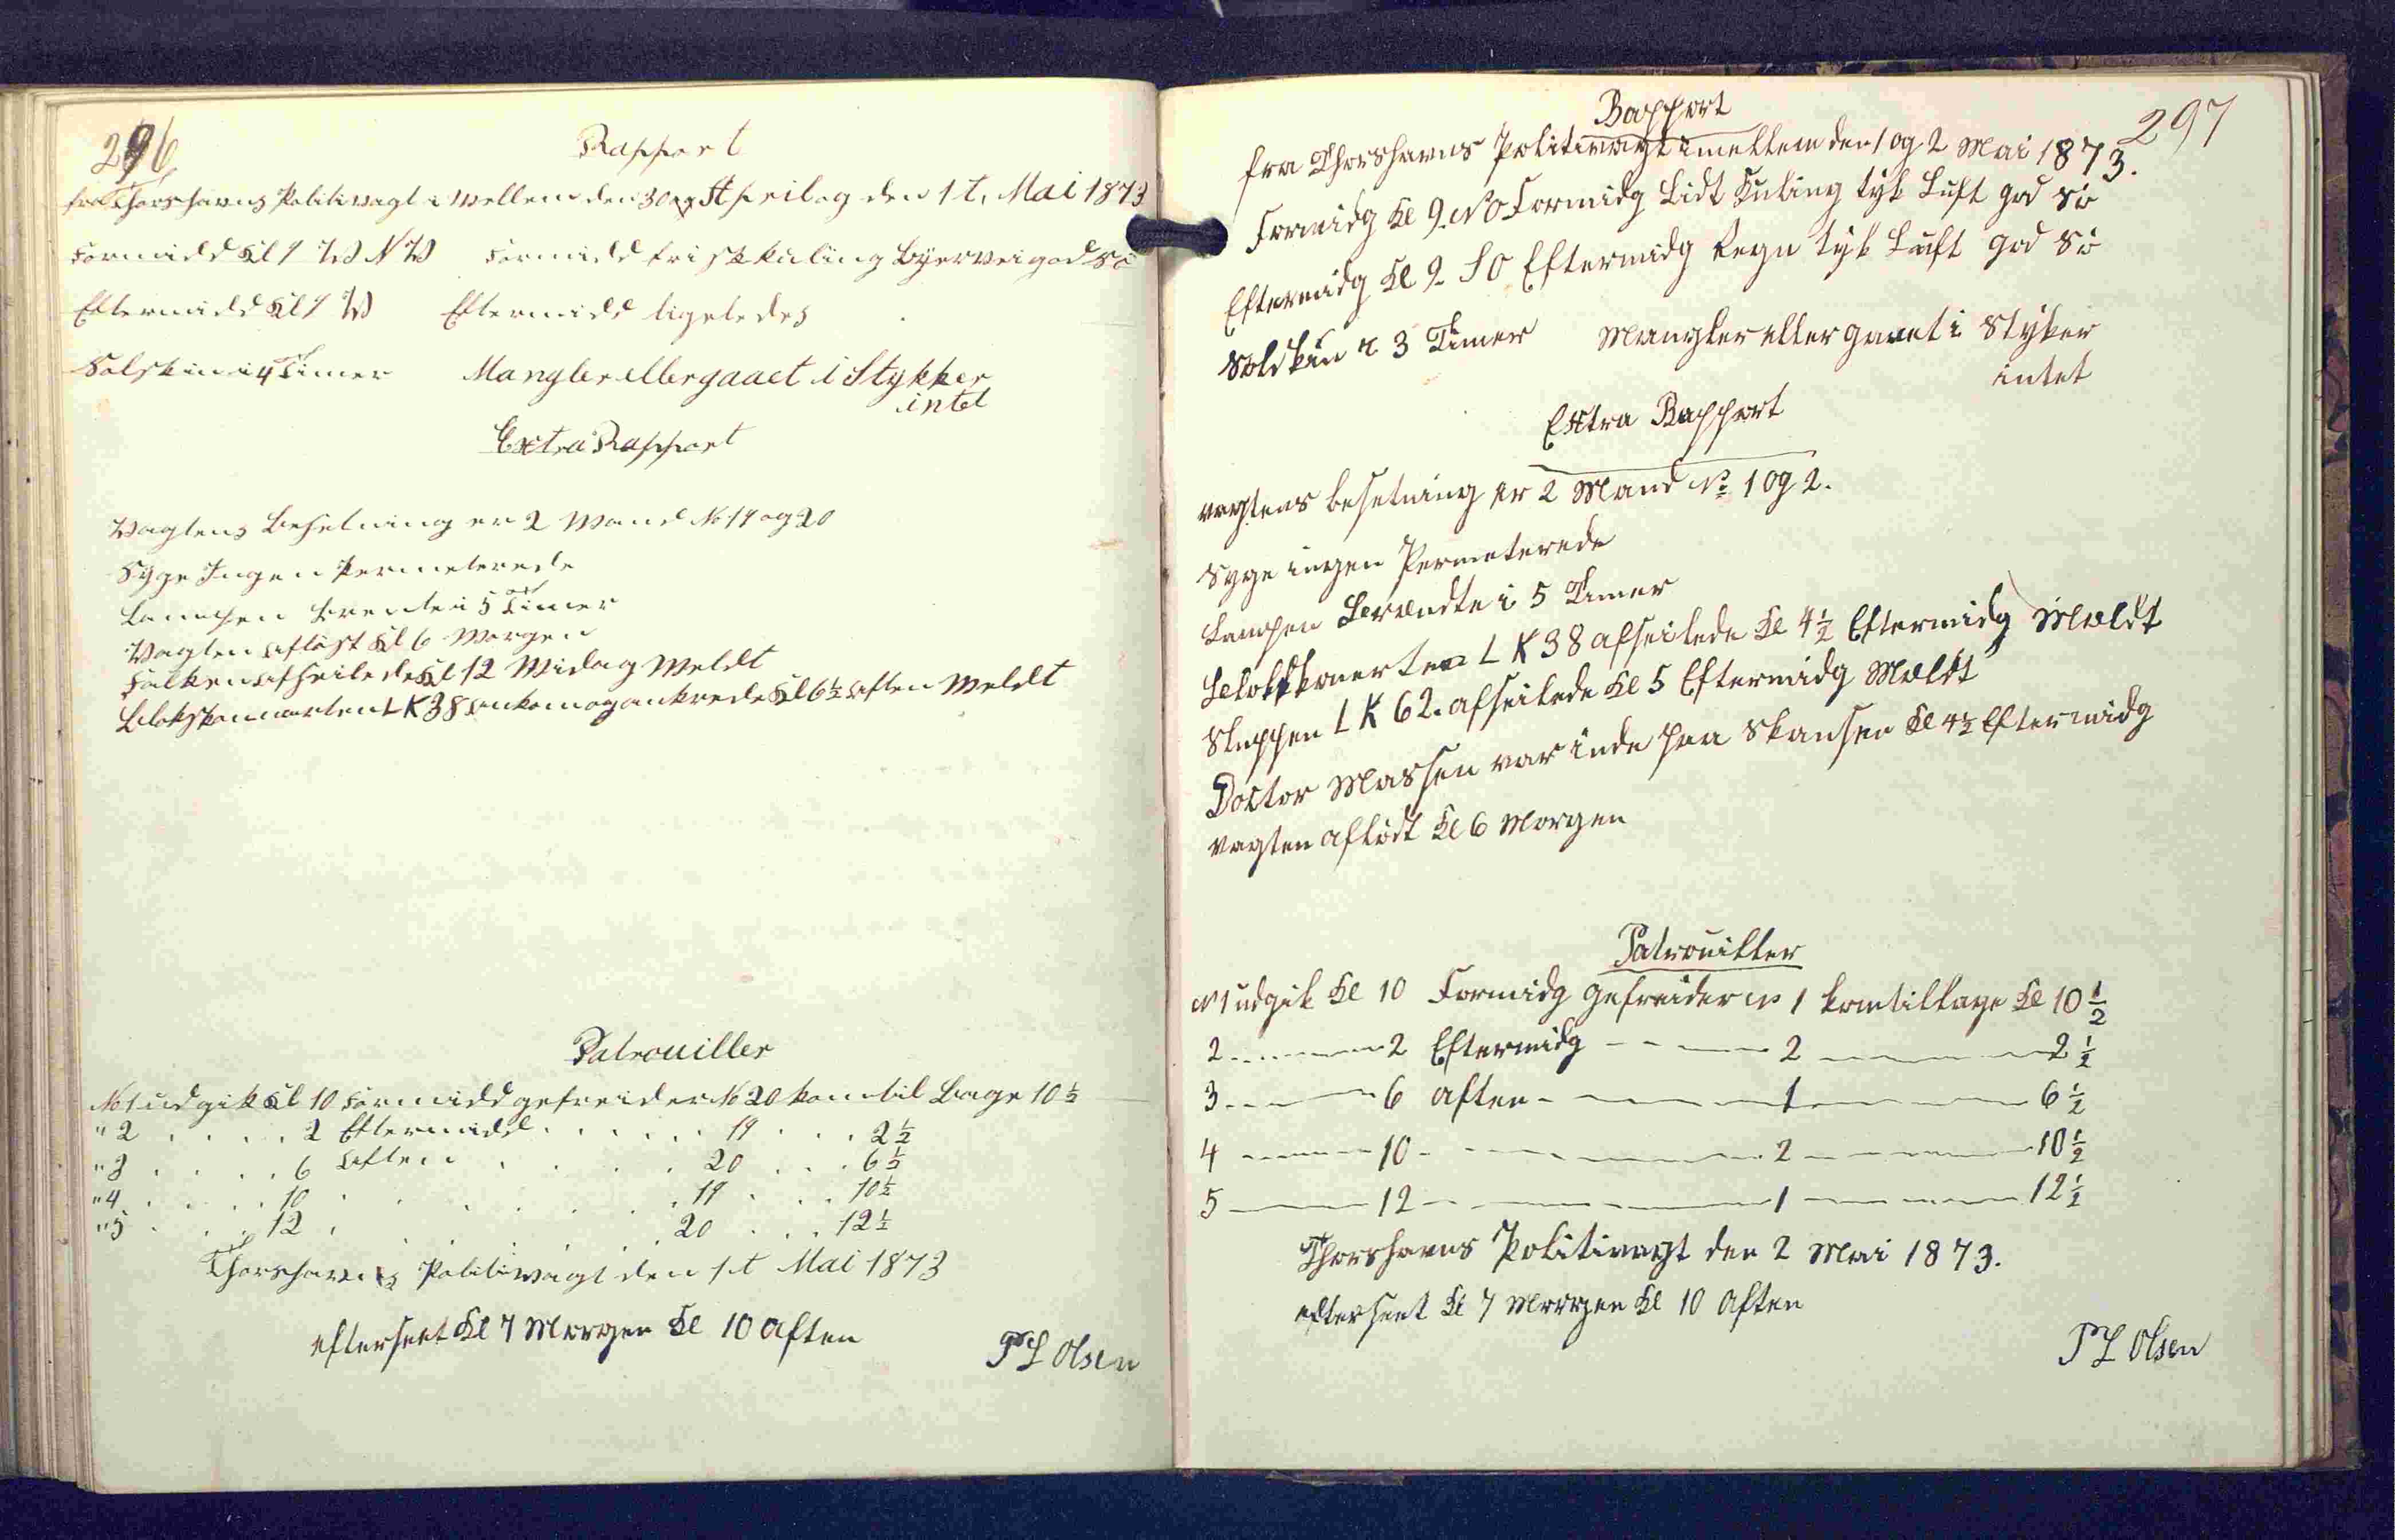 296
Rapport
fra Thorshavns Politivagt i Mellem den 30 April og den 1t. Mai 1873
Formidd Kl 9 W N W Formidd frisk kuling Byervei god Sö
Eftermidd Kl 9 W Eftermidd ligeledes
Solskin i 4 Timer Mangler eller gaaet i Stykker
intet
Extra Rapport
Vagtens Besetning er 2 Mand No 19 og 20
Syge Ingen Permeterede
Lampen brente i 5 Timer
Vagten aflöst Kl 6 Morgen
Falken afseilede Kl 12 Midag Meldt
Blokskonnerten LK 38 ankom og ankrede Kl 6½ Aften Meldt
Patrouiller
No 1 udgik Kl 10 Formidd gefreider No 20 kom til Bage 10½
" 2 . . . . 2 Eftermidd . . . . . 19 . . . 2½
" 3 . . . . 6 Aften . . . . 20 . . . 6½
" 4 . . . . 10 . . . . . . 19 . . . 10½
" 5 . . . . 12 . . . . . . 20 . . . 12½
Thorshavns Politivagt den 1t Mai 1873
efterseet Kl 7 Morgen Kl 10 Aften
P L Olsen
297
Rapport
fra Thorshavns Politivagt imellem den 1 og 2 Mai 1873.
Formidg Kl 9. NO Formidg Lidt Kuling tyk Luft god Sö
Eftermidg Kl 9 SO Eftermidg Regn tyk Luft god Sö
Solskin i 3 Timer Mangler eller gaaet i Styker
intet
Extra Rapport
vagtens besetning er 2 Mand No 1 og 2.
Syge ingen Permeterede
Lampen Brændte i 5 Timer
Blokskonerten L K 38 afseilede Kl 4½ Eftermidg Mældt
Sluppen L K 62. afseilede Kl 5 Eftermidg Mældt
Doctor Massen var inde paa Skansen Kl 4½ Eftermidg
Vagten aflödt Kl 6 Morgen
Patrouiller
N 1 udgik Kl 10 Formidg gefreider No 1 kom tilbage Kl 10 ½
2 - - - - 2 Eftermidg - - - - 2 - - - - 2 ½
3 - - - - 6 aften - - - - 1 - - - - 6 ½
4 - - - - 10 - - - - 2 - - - - 10 ½
5 - - - - 12 - - - - 1 - - - - 12 ½
Thorshavns Politivagt den 2 Mai 1873.
efterseet Kl 7 Morgen Kl 10 Aften
P L Olsen